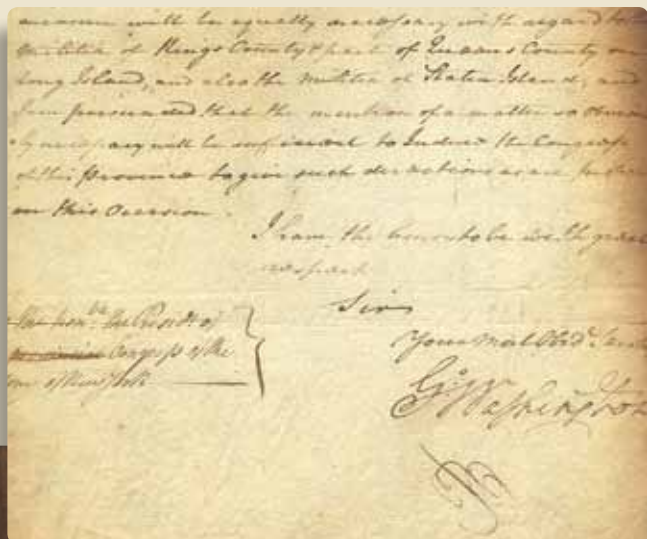 measure will be equally necessary with regard to the
militia of Kings County & part of Queens County on
Long Island, and also the militia of Staten Island, and
I am persuaded that the mention of a matter so
necessary will be sufficient to Induce the Congress
of this Province to give such directions as are
on this Occasion.
I have the honor to be with great
respect
Sir
Your most Obed. Servt
To the Honble. the Presidt. of
Congress of the
of New York
Go Washington